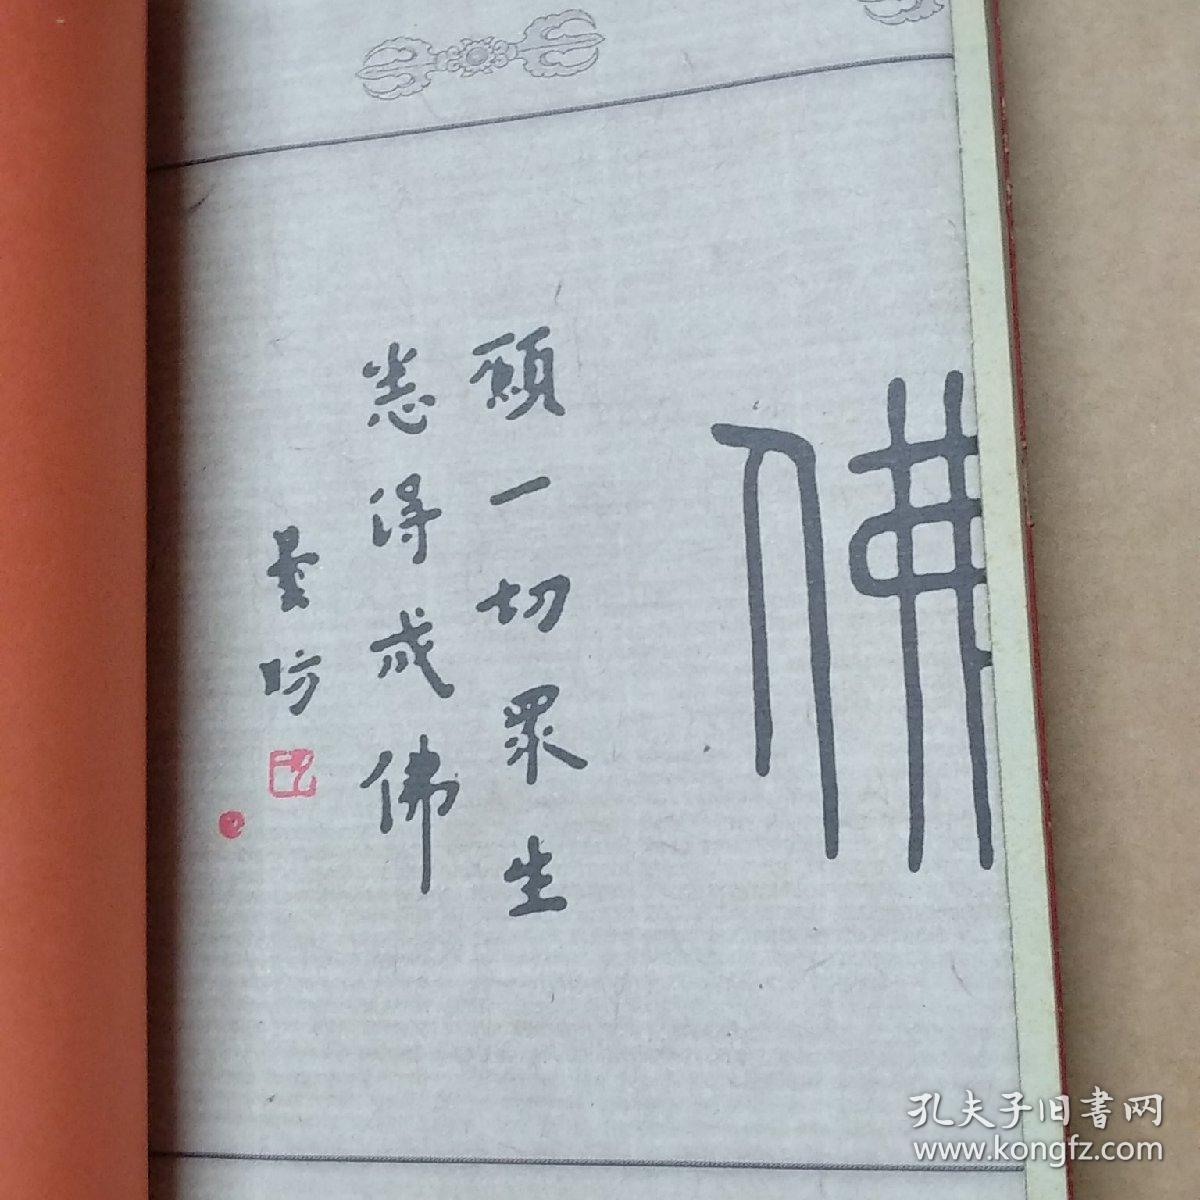 佛
願一切眾生
悉得成佛
曇昉
孔夫子旧書网
www.kongfz.com